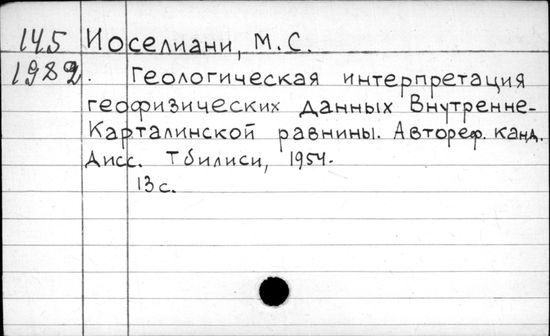 145 Иоселиани, М.С.
1982. Геологическая интерпретация
геофизических данных Внутренне-
Карталинской равнины. Автореф. канд.
Дисс. Тбилиси, 1954.
13 с.